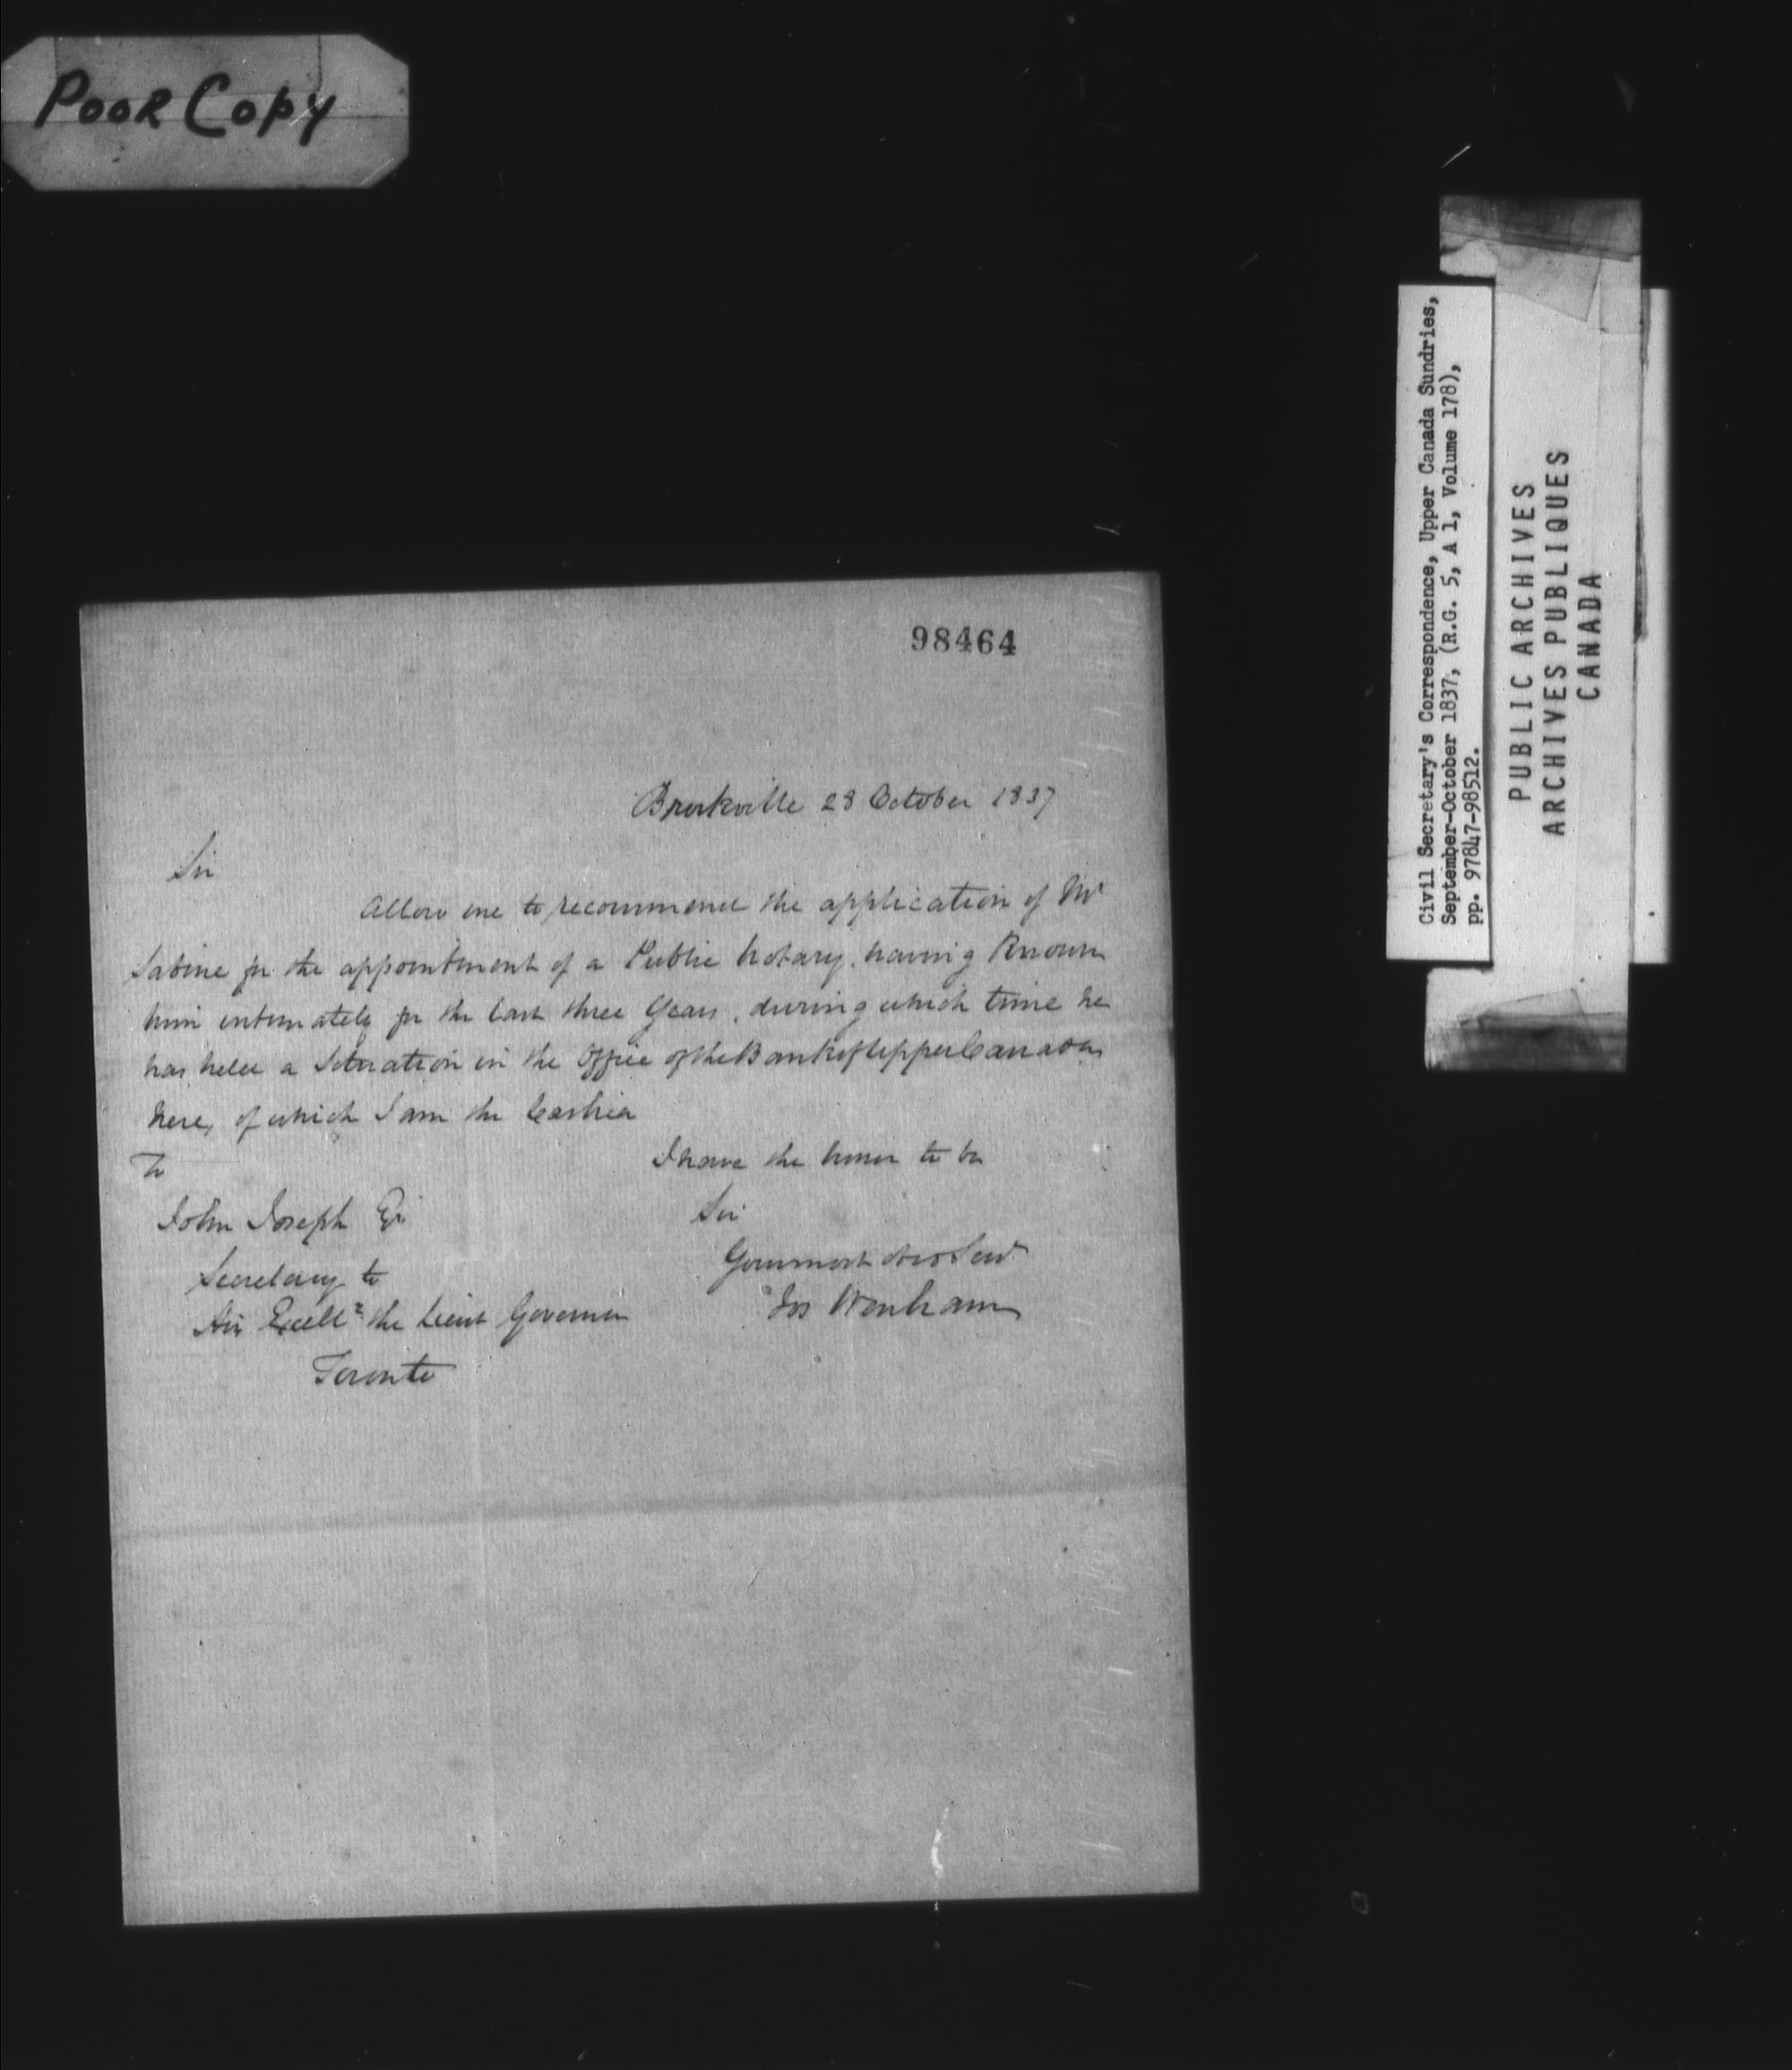 POOR COPY
98464
Brockville 28 October 1837
Sir
Allow me to recommend the application of Mr
Sabine for the appointment of a Public Notary, having Known
him intimately for the last three Years, during which time he
has held a Situation in the Office of the Bank of Upper Canada
here, of which I am the Cashier
I have the honor to be
Sir
Your most Obt Servt
Jas Wenham
To
John Joseph Esqr
Secretary to
His Excellcy the Lieut Governor
Toronto
Civil Secretary's Correspondence, Upper Canada Sundries,
September-October 1837, (R.G. 5, A 1, Volume 178),
pp. 97847-98512.
PUBLIC ARCHIVES
ARCHIVES PUBLIQUES
CANADA